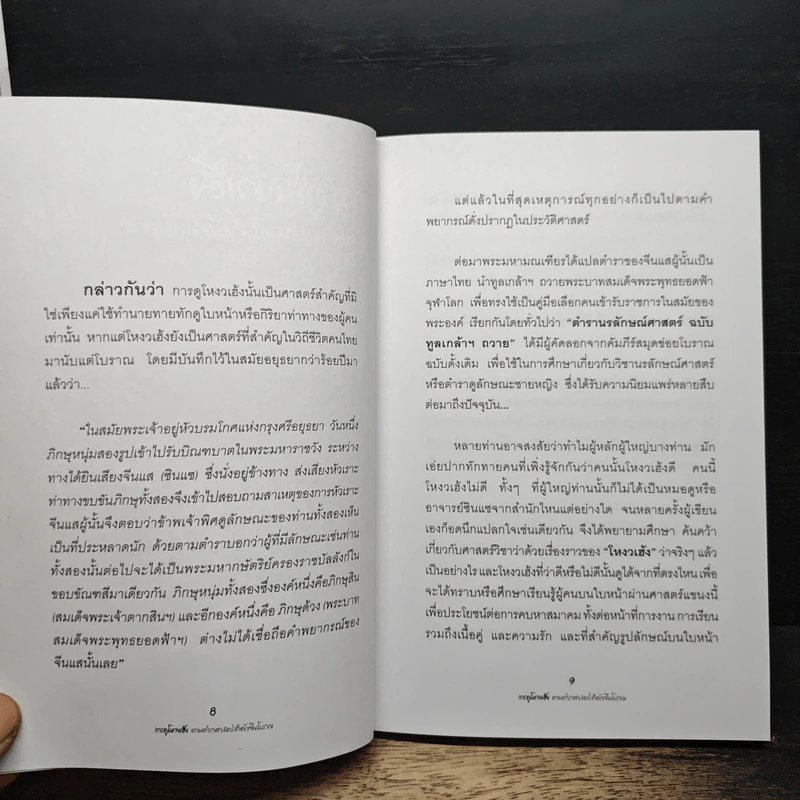 กล่าวกันว่า การดูโหงวเฮ้งนั้นเป็นศาสตร์สำคัญที่มิ
ใช่เพียงแค่ใช้ทำนายทายทักดูใบหน้าหรือกิริยาท่าทางของผู้คน
เท่านั้น หากแต่โหงวเฮ้งยังเป็นศาสตร์ที่สำคัญในวิถีชีวิตคนไทย
มานับแต่โบราณ โดยมีบันทึกไว้ในสมัยอยุธยากว่าร้อยปีมา
แล้วว่า...
“ในสมัยพระเจ้าอยู่หัวบรมโกศแห่งกรุงศรีอยุธยา วันหนึ่ง
ภิกษุหนุ่มสองรูปเข้าไปรับบิณฑบาตในพระมหาราชวัง ระหว่าง
ทางได้ยินเสียงจีนแส (ซินแซ) ซึ่งนั่งอยู่ข้างทาง ส่งเสียงหัวเราะ
ท่าทางขบขันภิกษุทั้งสองจึงเข้าไปสอบถามสาเหตุของการหัวเราะ
จีนแสผู้นั้นจึงตอบว่าข้าพเจ้าพิศดูลักษณะของท่านทั้งสองเห็น
เป็นที่ประหลาดนัก ด้วยตามตำราบอกว่าผู้ที่มีลักษณะเช่นท่าน
ทั้งสองนั้นต่อไปจะได้เป็นพระมหากษัตริย์ครองราชบัลลังก์ใน
ขอบขัณฑสีมาเดียวกัน ภิกษุหนุ่มทั้งสองซึ่งองค์หนึ่งคือภิกษุสิน
(สมเด็จพระเจ้าตากสินฯ) และอีกองค์หนึ่งคือ ภิกษุด้วง (พระบาท
สมเด็จพระพุทธยอดฟ้าฯ) ต่างไม่ได้เชื่อถือคำพยากรณ์ของ
จีนแสนั้นเลย”
8
การดูโหงวเฮ้ง ตามตำราศาสตร์สำคัญจีนโบราณ
แต่แล้วในที่สุดเหตุการณ์ทุกอย่างก็เป็นไปตามคำ
พยากรณ์ดั่งปรากฏในประวัติศาสตร์
ต่อมาพระมหามณเฑียรได้แปลตำราของจีนแสผู้นั้นเป็น
ภาษาไทย นำทูลเกล้าฯ ถวายพระบาทสมเด็จพระพุทธยอดฟ้า
จุฬาโลก เพื่อทรงใช้เป็นคู่มือเลือกคนเข้ารับราชการในสมัยของ
พระองค์ เรียกกันโดยทั่วไปว่า “ตำรานรลักษณ์ศาสตร์ ฉบับ
ทูลเกล้าฯ ถวาย” ได้มีผู้คัดลอกจากคัมภีร์สมุดข่อยโบราณ
ฉบับดั้งเดิม เพื่อใช้ในการศึกษาเกี่ยวกับวิชานรลักษณ์ศาสตร์
หรือตำราดูลักษณะชายหญิง ซึ่งได้รับความนิยมแพร่หลายสืบ
ต่อมาถึงปัจจุบัน...
หลายท่านอาจสงสัยว่าทำไมผู้หลักผู้ใหญ่บางท่าน มัก
เอ่ยปากทักทายคนที่เพิ่งรู้จักกันว่าคนนั้นโหงวเฮ้งดี คนนี้
โหงวเฮ้งไม่ดี ทั้งๆ ที่ผู้ใหญ่ท่านนั้นก็ไม่ได้เป็นหมอดูหรือ
อาจารย์ซินแซจากสำนักไหนแต่อย่างใด จนหลายครั้งผู้เขียน
เองก็อดนึกแปลกใจเช่นเดียวกัน จึงได้พยายามศึกษา ค้นคว้า
เกี่ยวกับศาสตร์วิชาว่าด้วยเรื่องราวของ “โหงวเฮ้ง” ว่าจริงๆ แล้ว
เป็นอย่างไร และโหงวเฮ้งที่ว่าดีหรือไม่ดีนั้นดูได้จากที่ตรงไหน เพื่อ
จะได้ทราบหรือศึกษาเรียนรู้ผู้คนบนใบหน้าผ่านศาสตร์แขนงนี้
เพื่อประโยชน์ต่อการคบหาสมาคม ทั้งต่อหน้าที่การงาน การเรียน
รวมถึงเนื้อคู่ และความรัก และที่สำคัญรูปลักษณ์บนใบหน้า
9
การดูโหงวเฮ้ง ตามตำราศาสตร์สำคัญจีนโบราณ